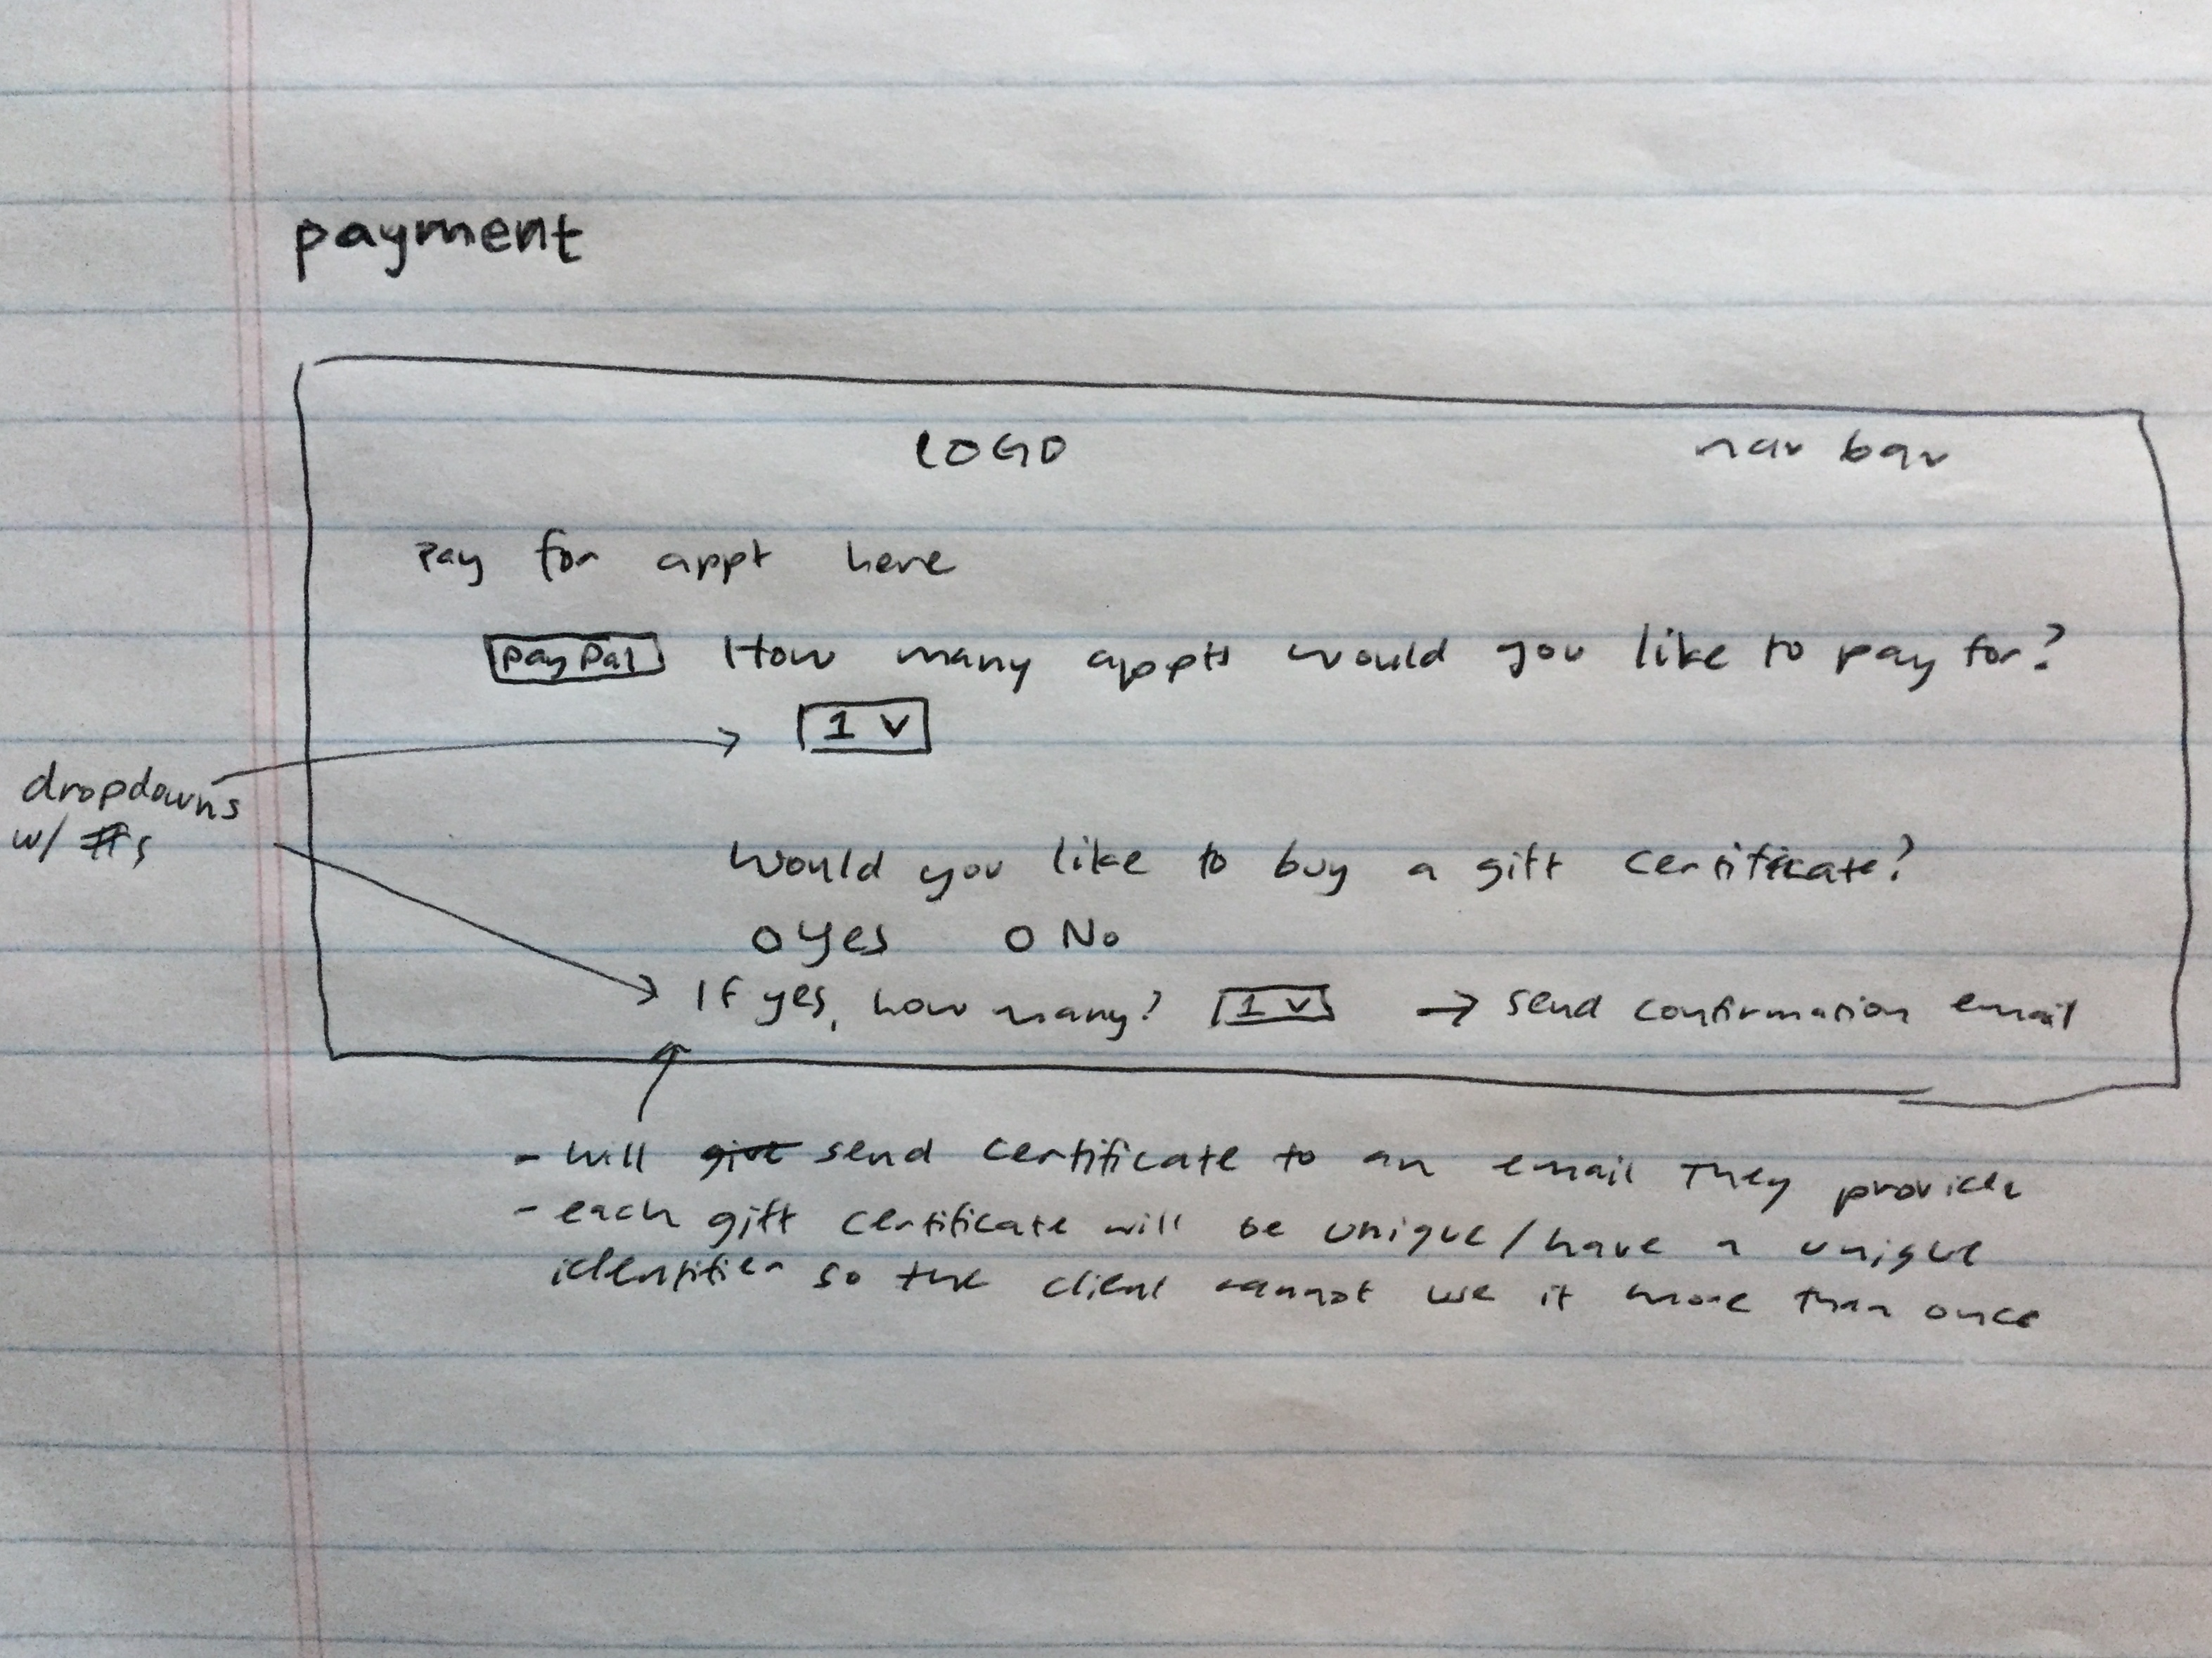 payment
LOGO nav bar
Pay for appt here
PayPal How many appts would you like to pay for?
1 v
dropdowns
w/ #s
Would you like to buy a gift certificate?
O Yes O No
If yes, how many? 1 v → send confirmation email
- will give send certificate to an email they provide
- each gift certificate will be unique / have a unique
identifier so the client cannot use it more than once